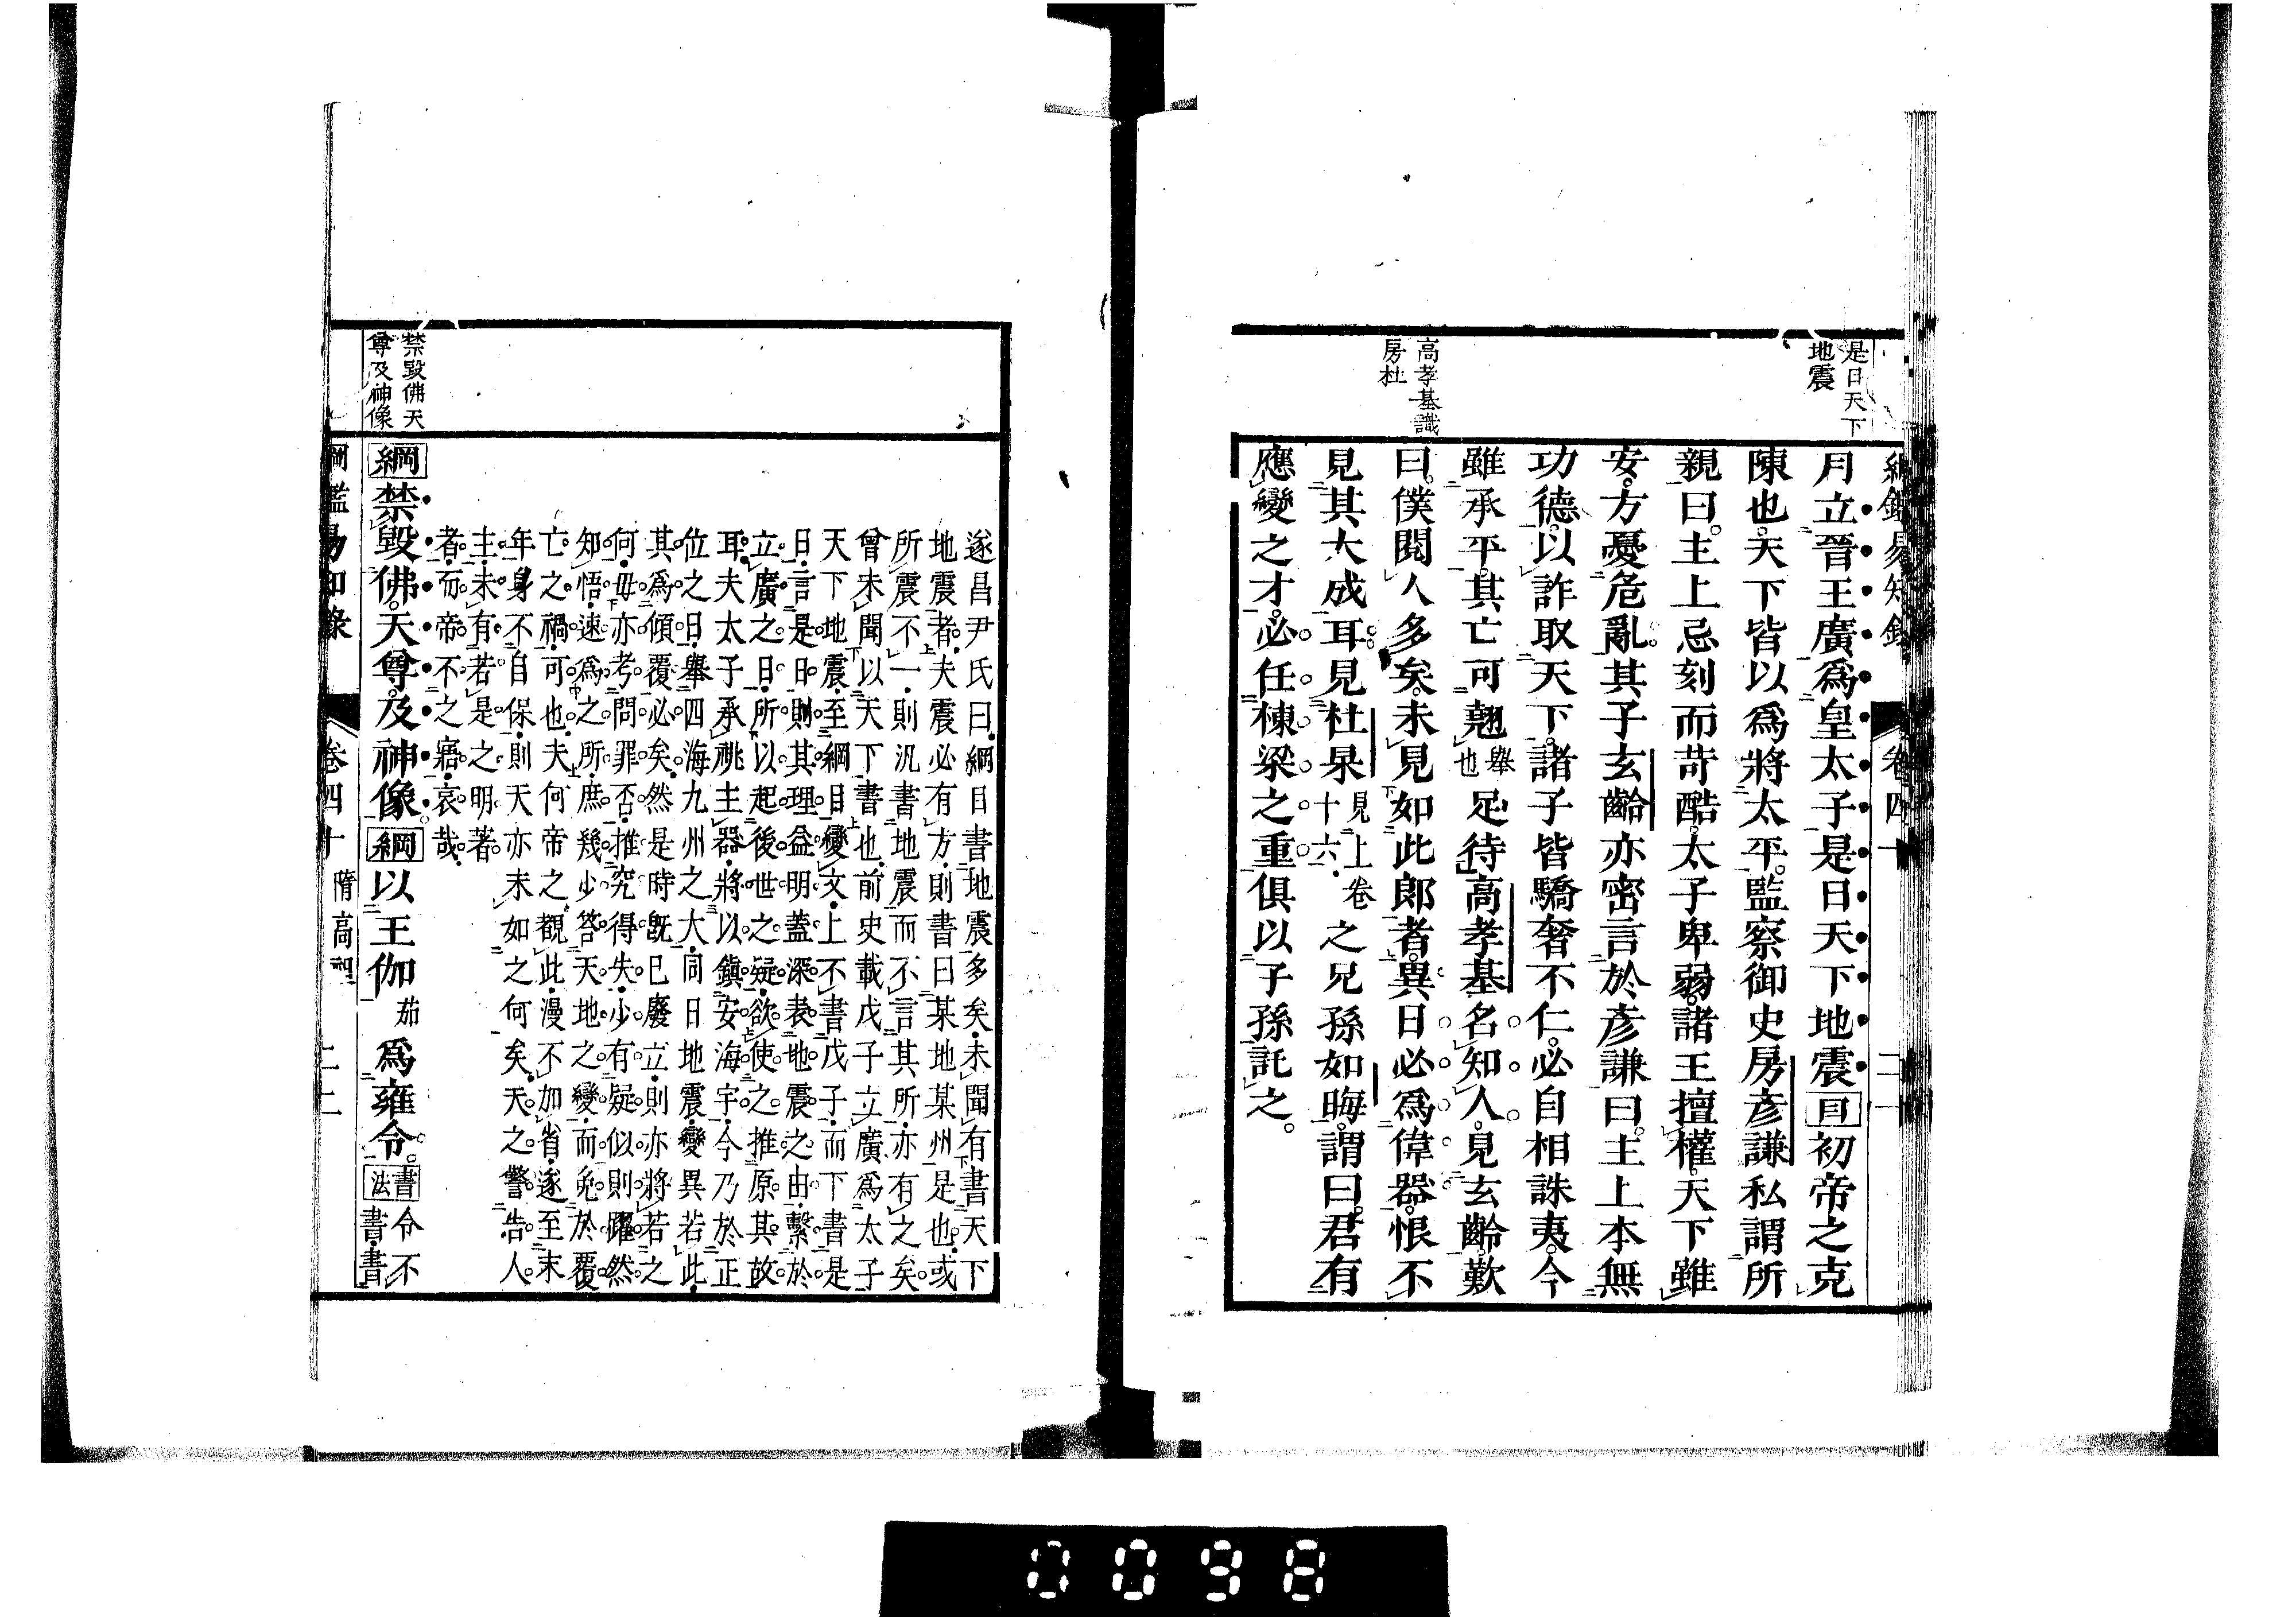 是日天下
地震
高孝基識
房杜
綱鑑易知錄
卷四十
二一
月立晉王廣爲皇太子是日天下地震目初帝之克
陳也天下皆以爲將太平監察御史房彥謙私謂所
親曰主上忌刻而苛酷太子卑弱諸王擅權天下雖
安方憂危亂其子玄齡亦密言於彥謙曰主上本無
功德以詐取天下諸子皆驕奢不仁必自相誅夷今
雖承平其亡可翹舉也足待高孝基名知人見玄齡歎
曰僕閱人多矣未見如此郎者異日必爲偉器恨不
見其大成耳見杜杲見上卷十六之兄孫如晦謂曰君有
應變之才必任棟梁之重俱以子孫託之。
遂昌尹氏曰綱目書地震多矣未聞有書天下
地震者夫震必有方則書曰某地某州是也或
所震不一則汎書地震而不言其所亦有之矣
曾未聞以天下書也前史載戊子立廣爲太子
天下地震至綱目變文上不書戊子而下書是
日言是日則其理益明蓋深表地震之由繫於
立廣之日所以起後世之疑欲使之推原其故
耳夫太子承祧主器將以鎮安海宇今乃於正
位之日舉四海九州之大同日地震變異若此
其爲傾覆必矣然是時旣已廢立則亦將若之
何毋亦考問罪否推究得失少有疑似則躍然
知悟速爲之所庶幾少答天地之變而免於覆
亡之禍可也夫何帝之觀此漫不加省遂至末
年身不自保則天亦未如之何矣天之警告人
主未有若是之明著
者而帝不之寤哀哉
禁毀佛天
尊及神像
綱禁毀佛天尊及神像綱以王伽茄爲雍令書法書令不書書
綱鑑易知錄
卷四十
隋高祖
0098